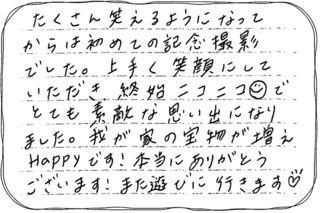 たくさん笑えるようになって
からは初めての記念撮影
でした。上手く笑顔にして
いただき終始ニコニコ☺で
とても素敵な思い出になり
ました。我が家の宝物が増え
Happyです！本当にありがとう
ございます！また遊びに行きます♡